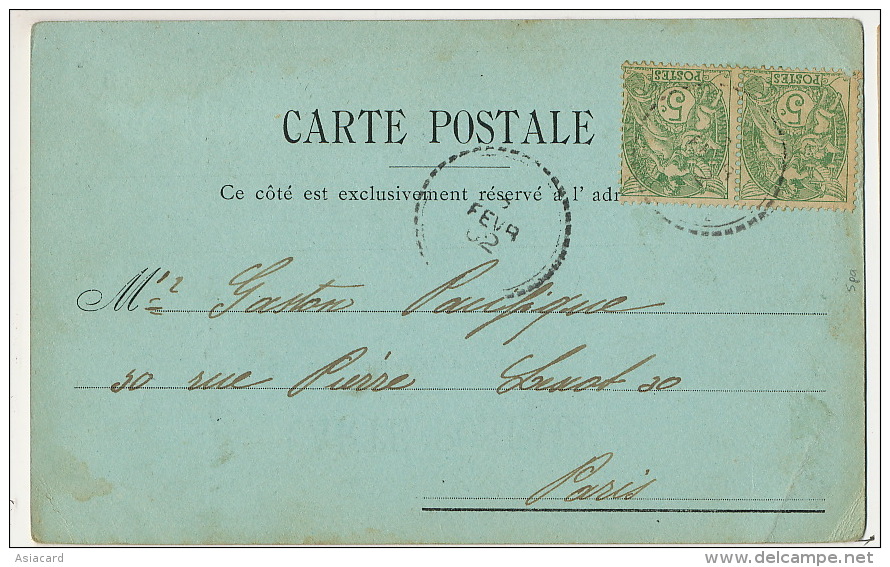 POSTES POSTES
5c 5c
CARTE POSTALE
Ce côté est exclusivement réservé à l' adr
FEVR
02
Mr Gaston
30 rue Pierre Lescot 30
Paris
Spa
Asiacard
delcampe.net